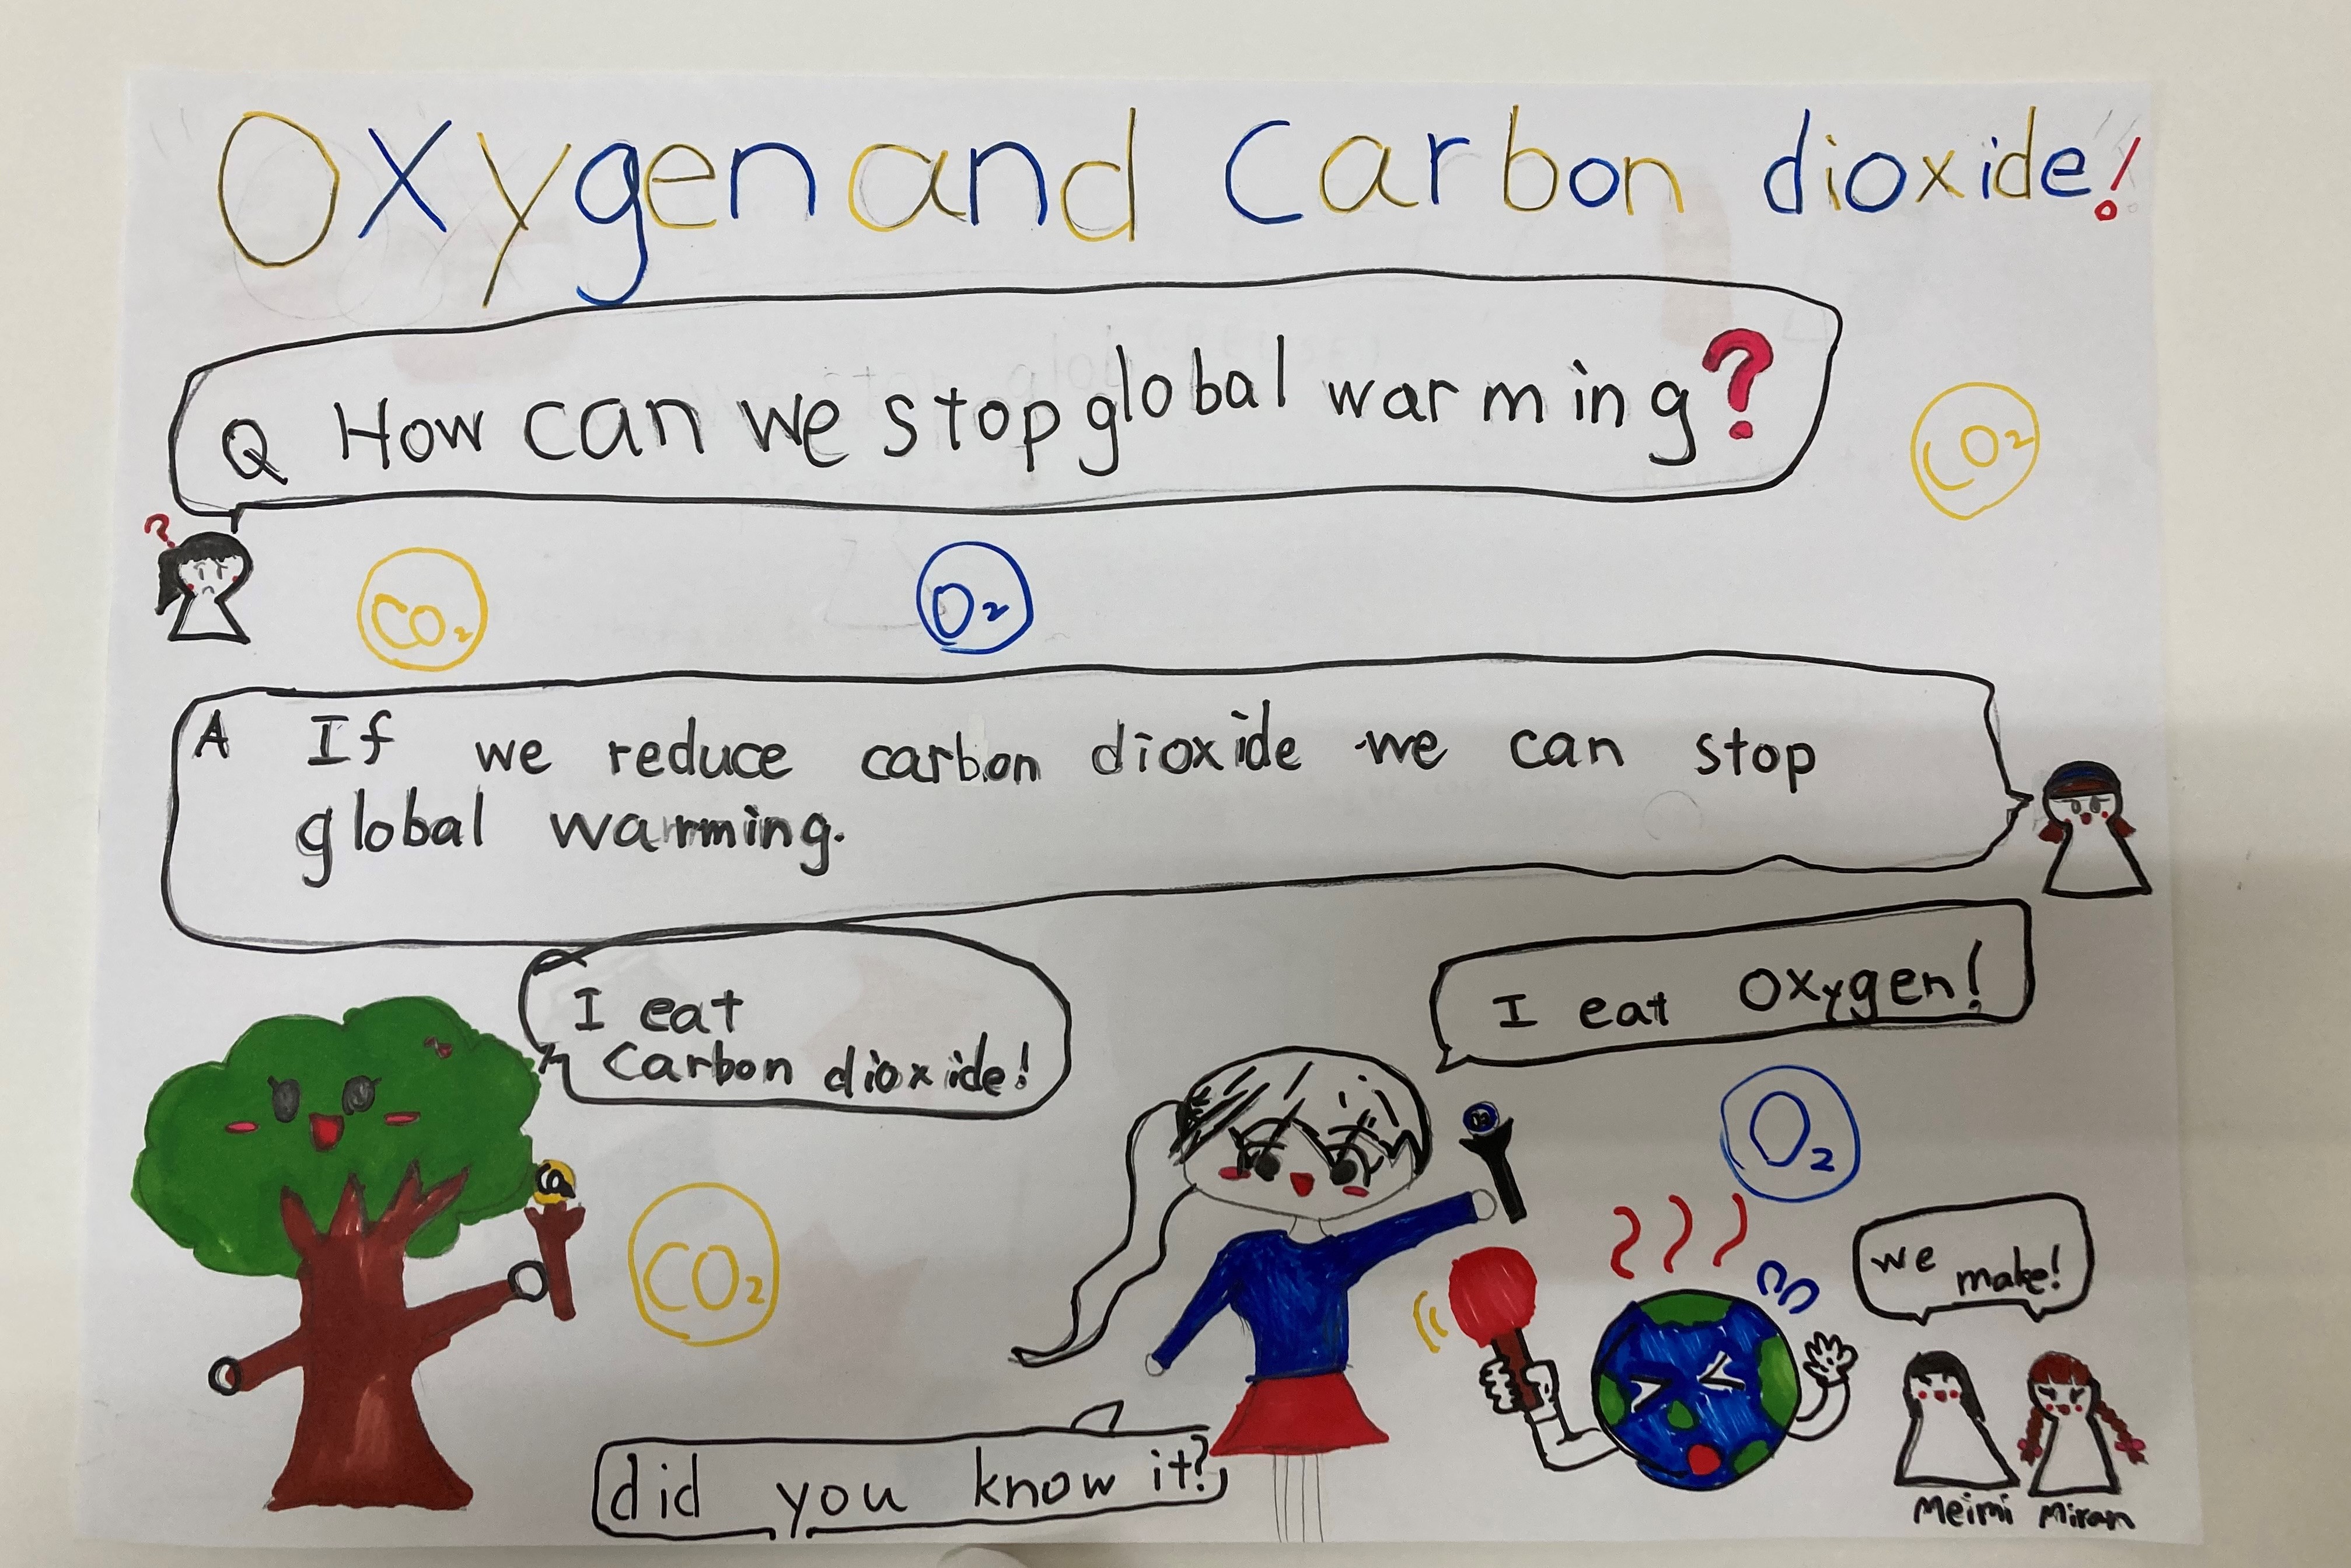 Oxygen and carbon dioxide!
Q How can we stop global warming?
CO2
CO2
O2
A If we reduce carbon dioxide we can stop
global warming.
I eat
carbon dioxide!
I eat oxygen!
O2
CO2
we make!
did you know it?
Meimi Miran